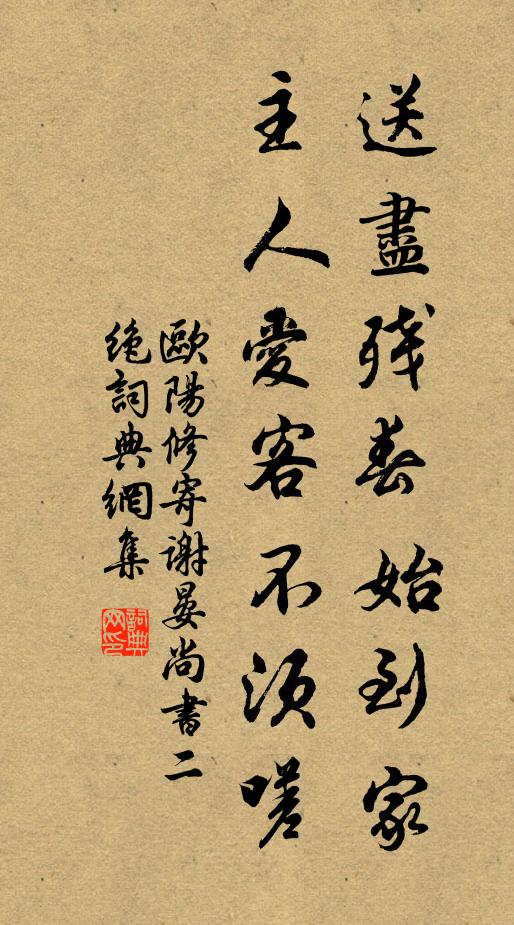 送盡殘春始到家
主人愛客不須嗟
歐陽修寄謝晏尚書二
絕詞典網集
詞典
网印